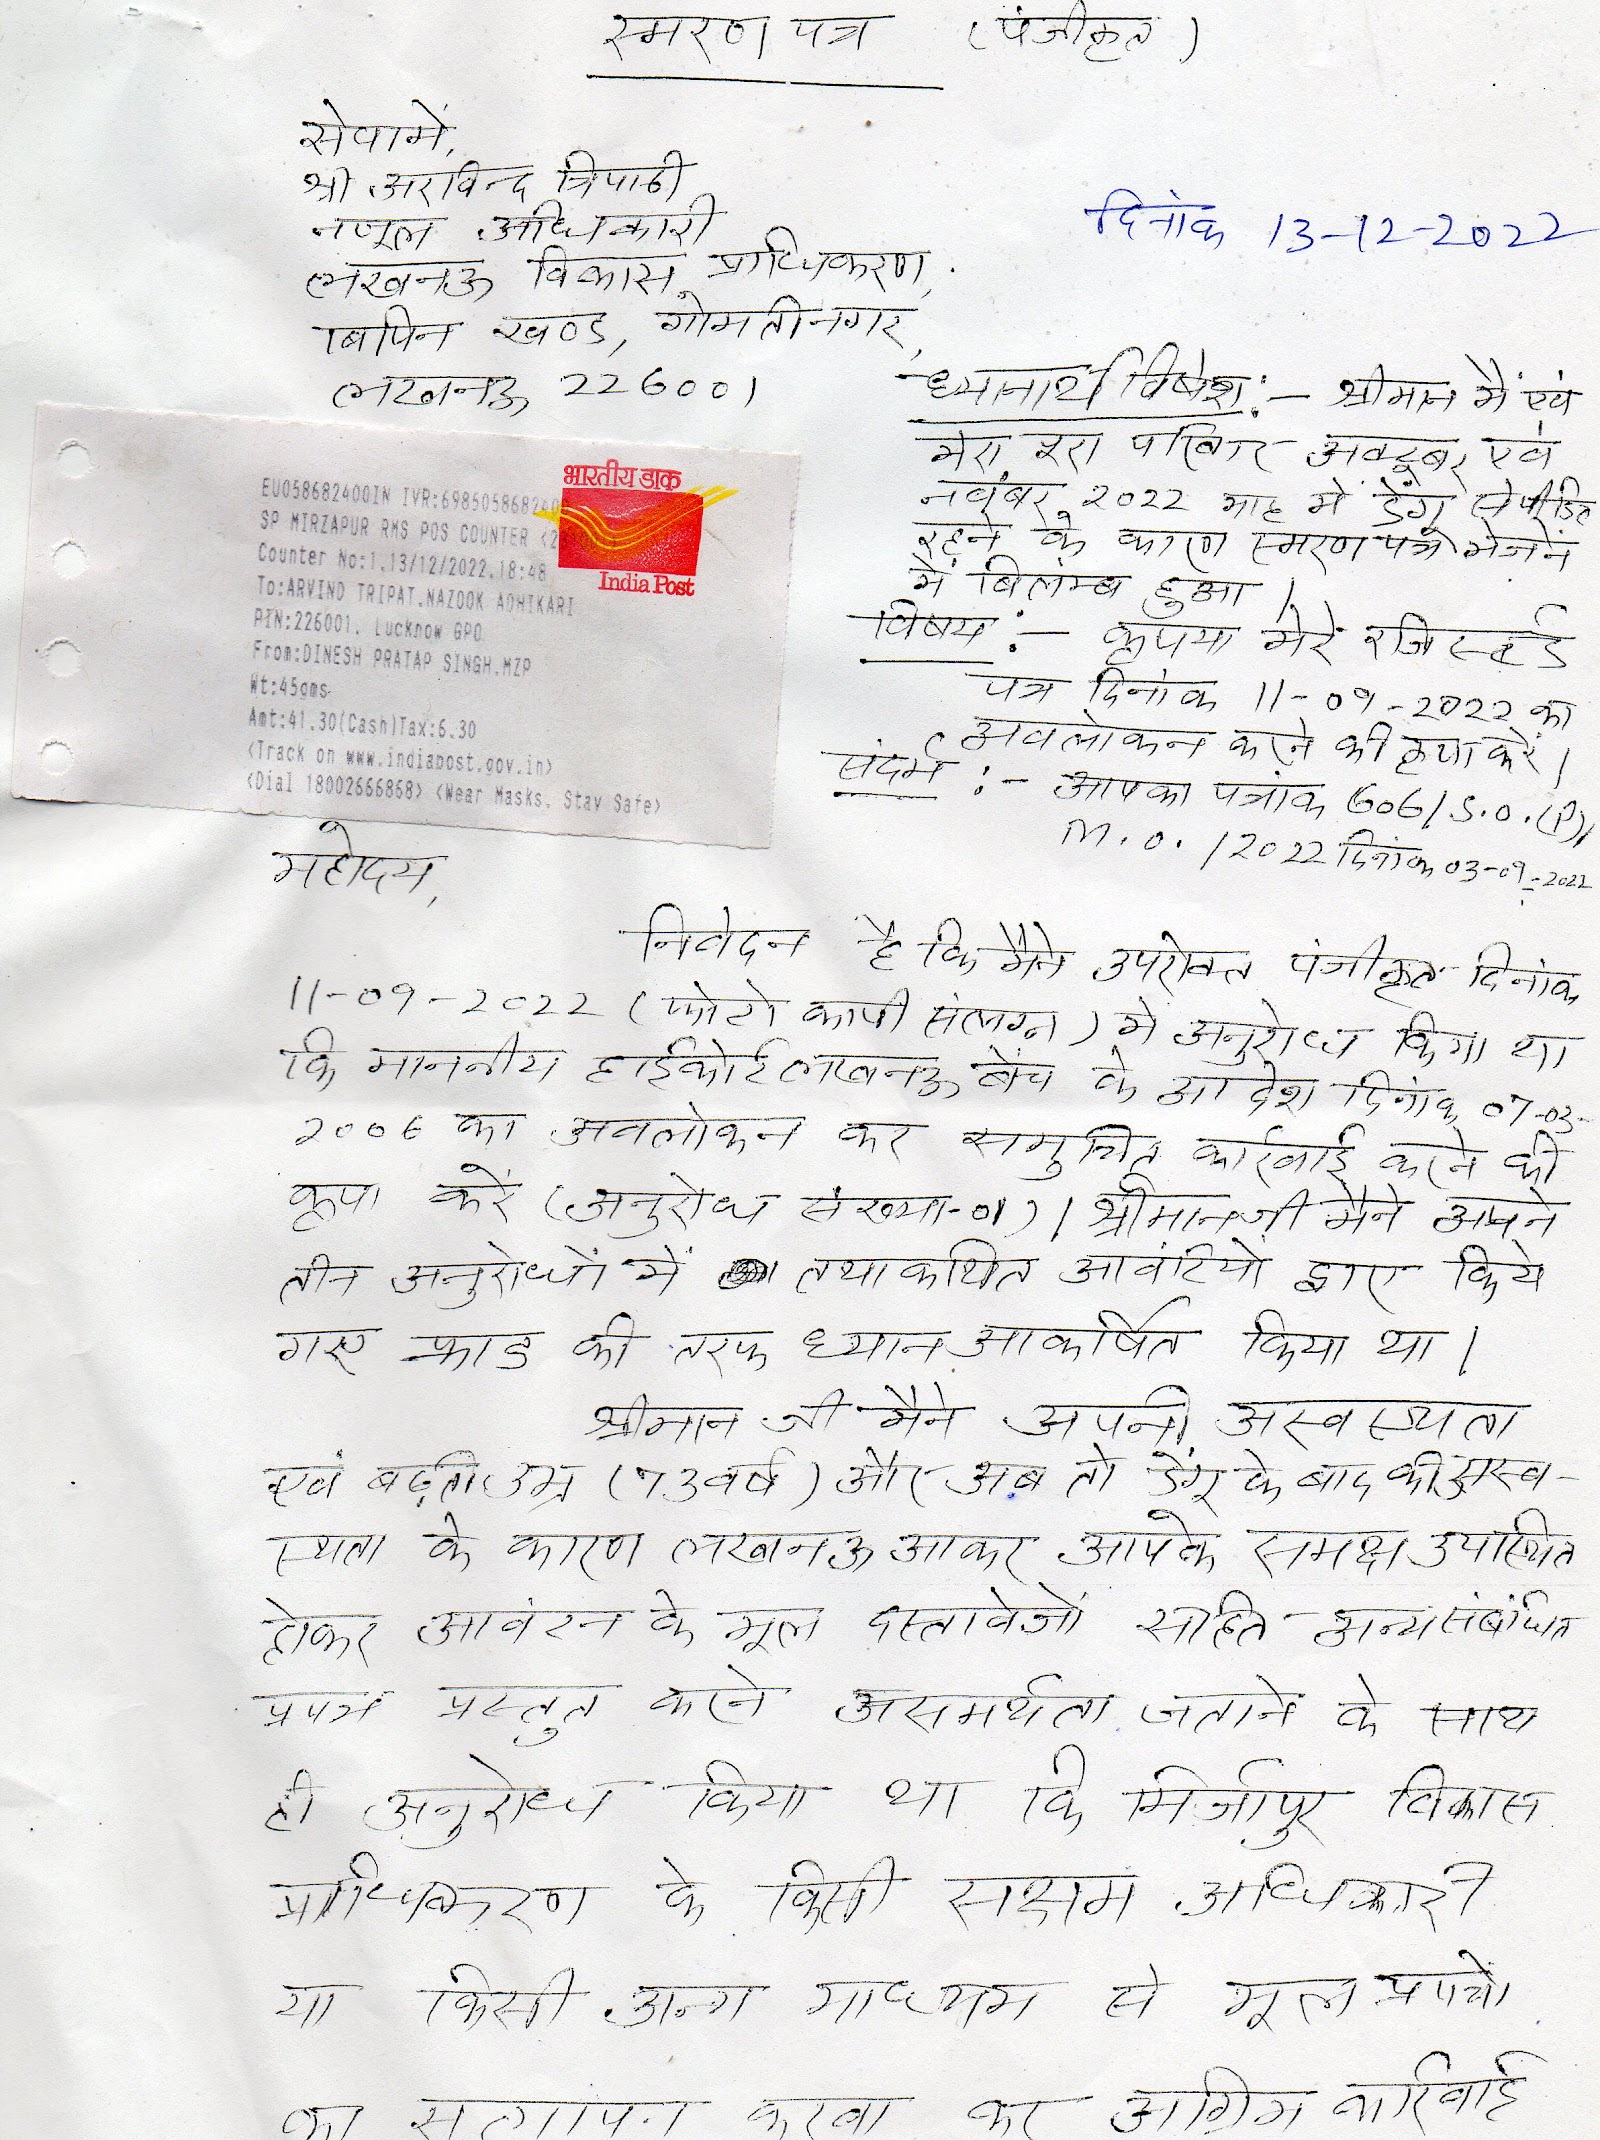 स्मरण पत्र (पंजीकृत)
सेवामें,
श्री अरविन्द त्रिपाठी
नजूल अधिकारी
लखनऊ विकास प्राधिकरण,
बिपिन खण्ड, गोमतीनगर,
लखनऊ 226001
दिनांक 13-12-2022
ध्यानार्थ विषेश :- श्रीमान मैं एवं
मेरा पूरा परिवार अक्टूबर एवं
नवंबर 2022 माह में डेंगू से पीडित
रहने के कारण स्मरण पत्र भेजने
में बिलंम्ब हुआ।
विषय :- कृपया मेरे रजिस्टर्ड
पत्र दिनांक 11-09-2022 का
अवलोकन करने की कृपा करें।
संदर्भ :- आपका पत्रांक 606/S.O.(P)/
M.O./2022 दिनांक 03-09-2022
EU058682400IN IVR:6985058682400
SP MIRZAPUR RMS POS COUNTER <2
Counter No:1,13/12/2022,18:48
To:ARVIND TRIPAT,NAZOOK ADHIKARI
PIN:226001, Lucknow GPO
From:DINESH PRATAP SINGH,MZP
Wt:45gms
Amt:41.30(Cash)Tax:6.30
<Track on www.indiapost.gov.in>
<Dial 18002666868> <Wear Masks, Stay Safe>
भारतीय डाक
India Post
महोदय,
निवेदन है कि मैने उपरोक्त पंजीकृत दिनांक
11-09-2022 (फोटो कापी संलग्न) में अनुरोध किया था
कि माननीय हाईकोर्ट लखनऊ बेंच के आदेश दिनांक 07-03-
2006 का अवलोकन कर समुचित कार्रवाई करने की
कृपा करें (अनुरोध संख्या-01)। श्रीमानजी मैने अपने
तीन अनुरोधों में तथाकथित आवंटियों द्वारा किये
गए फ्राड की तरफ ध्यान आकर्षित किया था।
श्रीमान जी मैने अपनी अस्वस्थता
एवं बढ़ती उम्र (73 वर्ष) और अब तो डेंगू के बाद की अस्व-
स्थता के कारण लखनऊ आकर आपके समक्ष उपस्थित
होकर आवंटन के मूल दस्तावेजों सहित अन्य संबंधित
प्रपत्र प्रस्तुत करने असमर्थता जताने के साथ
ही अनुरोध किया था कि मिर्जापुर विकास
प्राधिकरण के किसी सक्षम अधिकारी
या किसी अन्य माध्यम से मूल प्रपत्रों
का सत्यापन करवा कर अग्रिम कार्रवाई